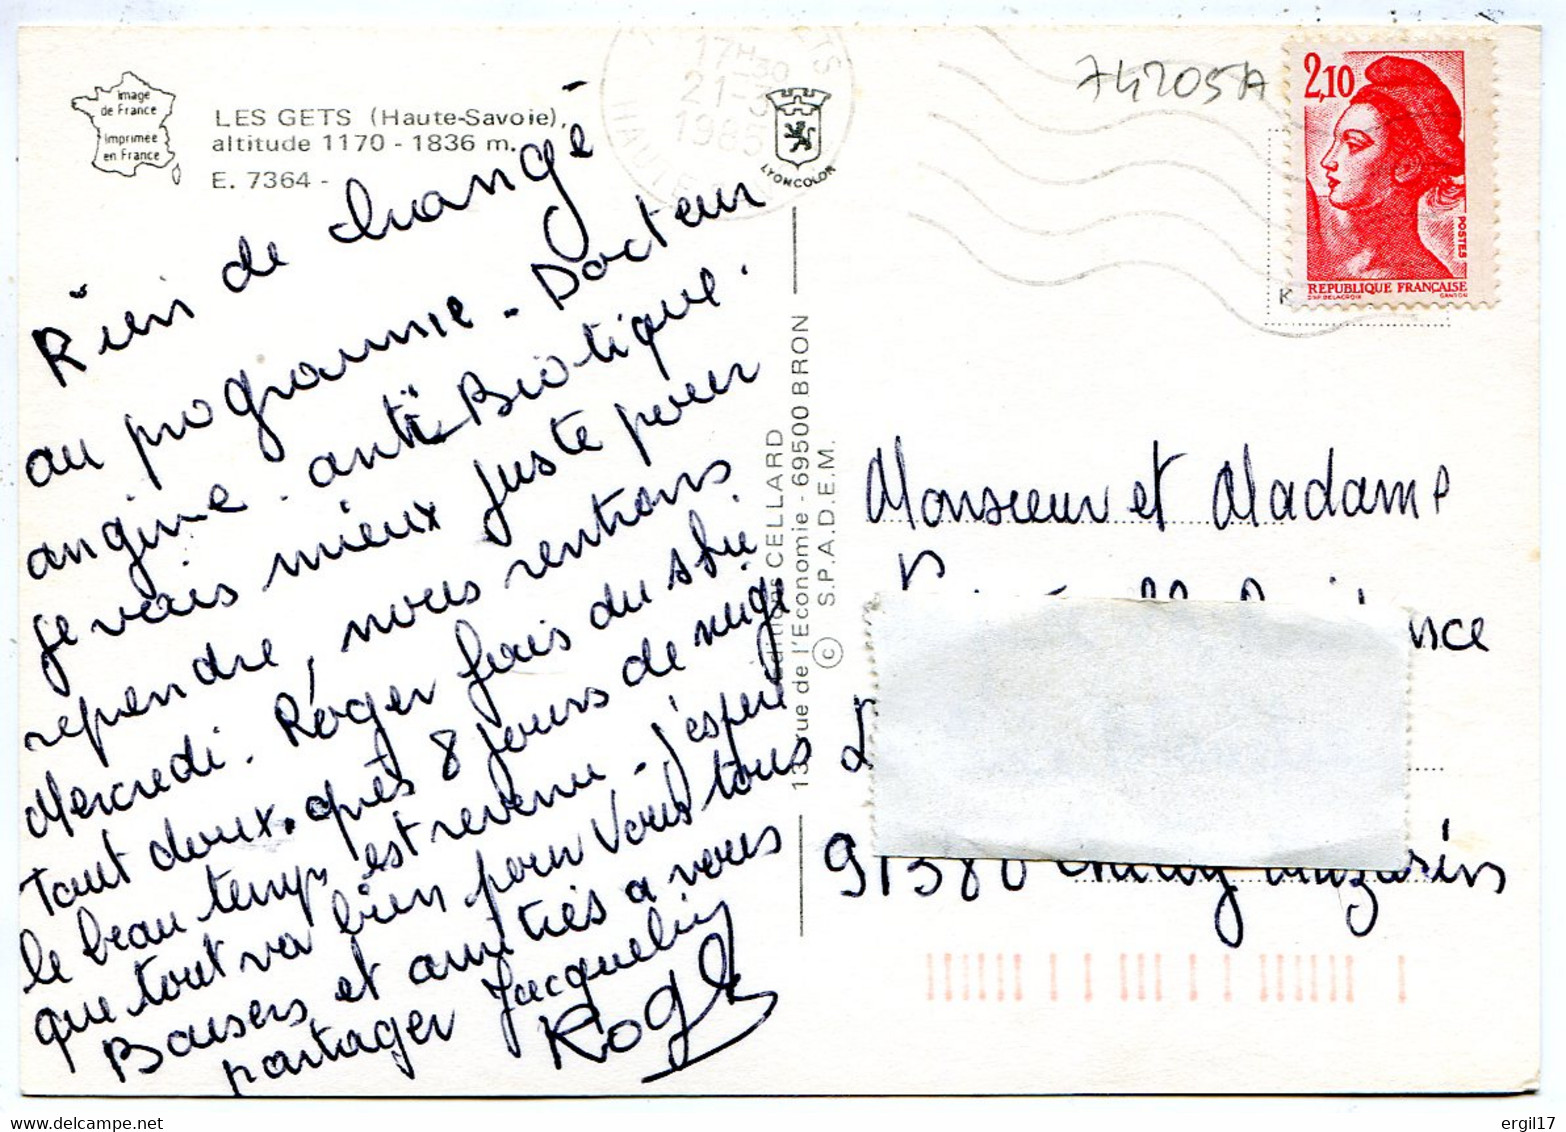 Image
de France
Imprimée
en France
LES GETS (Haute-Savoie),
altitude 1170 - 1836 m.
E. 7364 -
17H30
21-3
1985
LYONCOLOR
74205A
2,10
POSTES
REPUBLIQUE FRANÇAISE
D'AP. DELACROIX GANDON
K
Rien de changé
au programme - Docteur
angine - antiBiotique.
je vais mieux juste pour
reprendre, nous rentrons
Mercredi. Roger fais du skie
Tout doux. après 8 jours de neige
le beau temps est revenu - j'espère
que tout va bien pour Vous tous
Baisers et amitiés a vous
partager Jacqueline
Roger
Editions CELLARD
13, rue de l'Economie - 69500 BRON
© S.P.A.D.E.M.
Monsieur et Madame
91380 Chilly Mazarin
ergil17